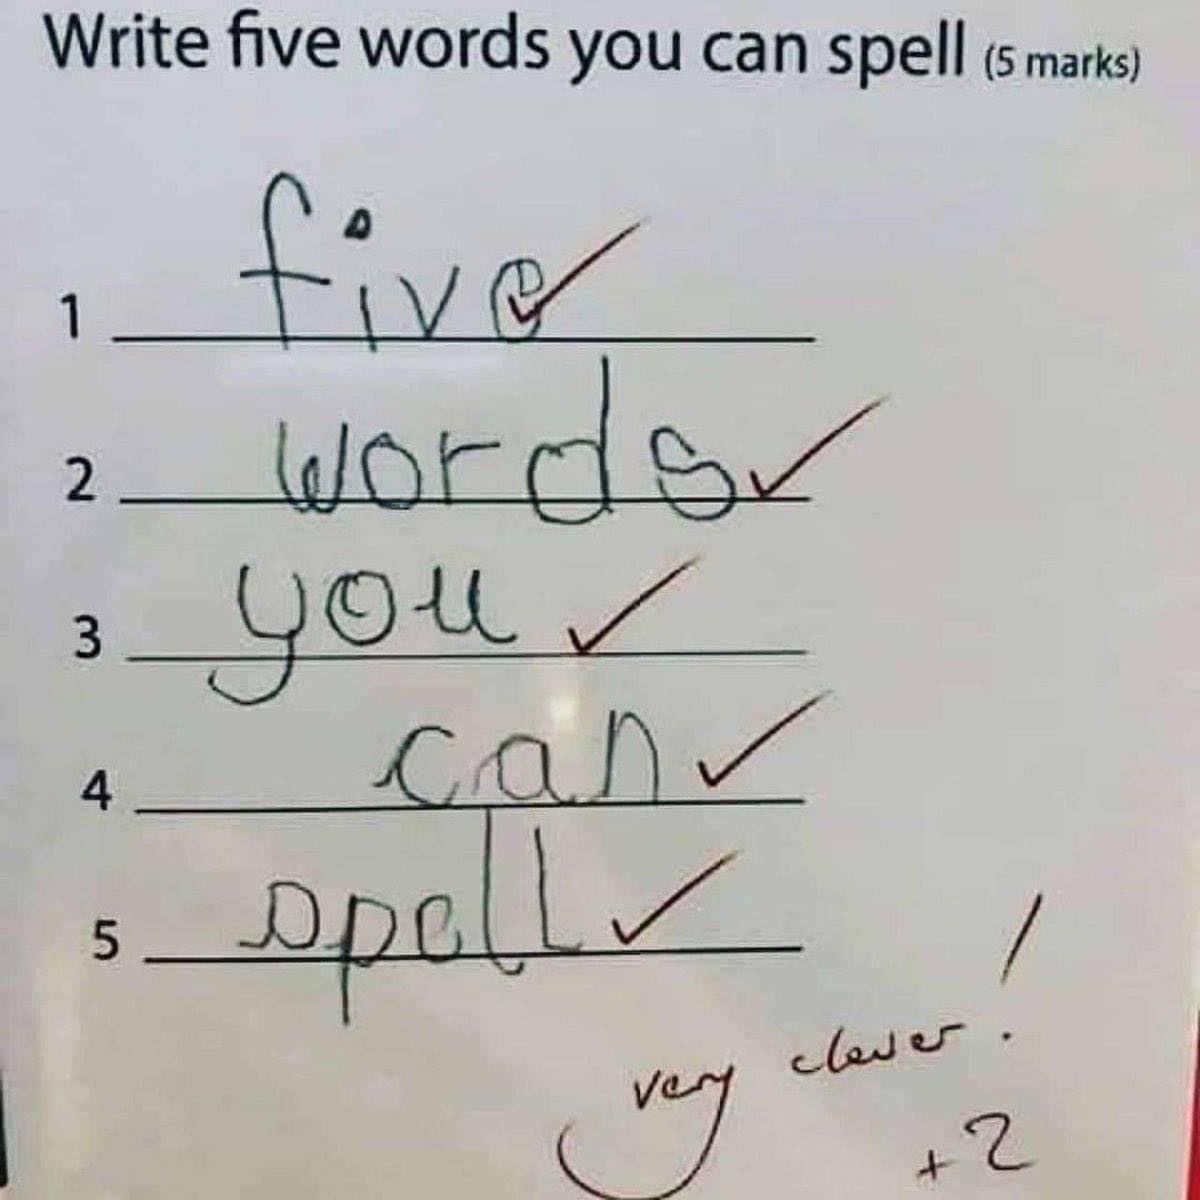 Write five words you can spell (5 marks)
1 five
2 words
3 you
4 can
5 spell
very clever!
+2